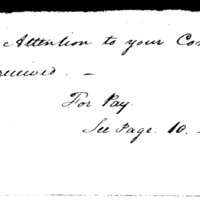 Attention to your
received. —
For Pay.
See Page. 10. —